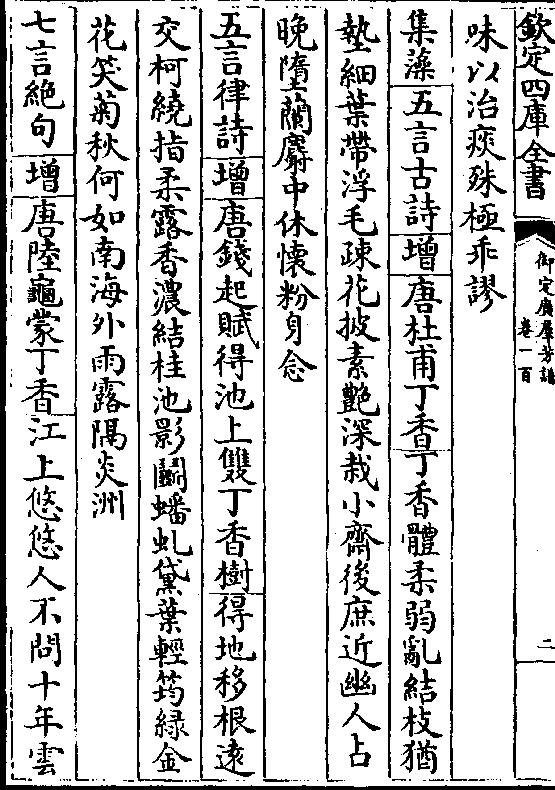 欽定四庫全書
御定廣羣芳譜
卷一百
二
味以治痰殊極乖謬
集藻 五言古詩 增 唐杜甫丁香丁香體柔弱亂結枝猶
墊細葉帶浮毛疎花披素艷深栽小齋後庶近幽人占
晚墮蘭麝中休懷粉身念
五言律詩 增 唐錢起賦得池上雙丁香樹得地移根遠
交柯繞指柔露香濃結桂池影鬬蟠虬黛葉輕筠綠金
花笑菊秋何如南海外雨露隔炎洲
七言絶句 增 唐陸龜蒙丁香江上悠悠人不問十年雲